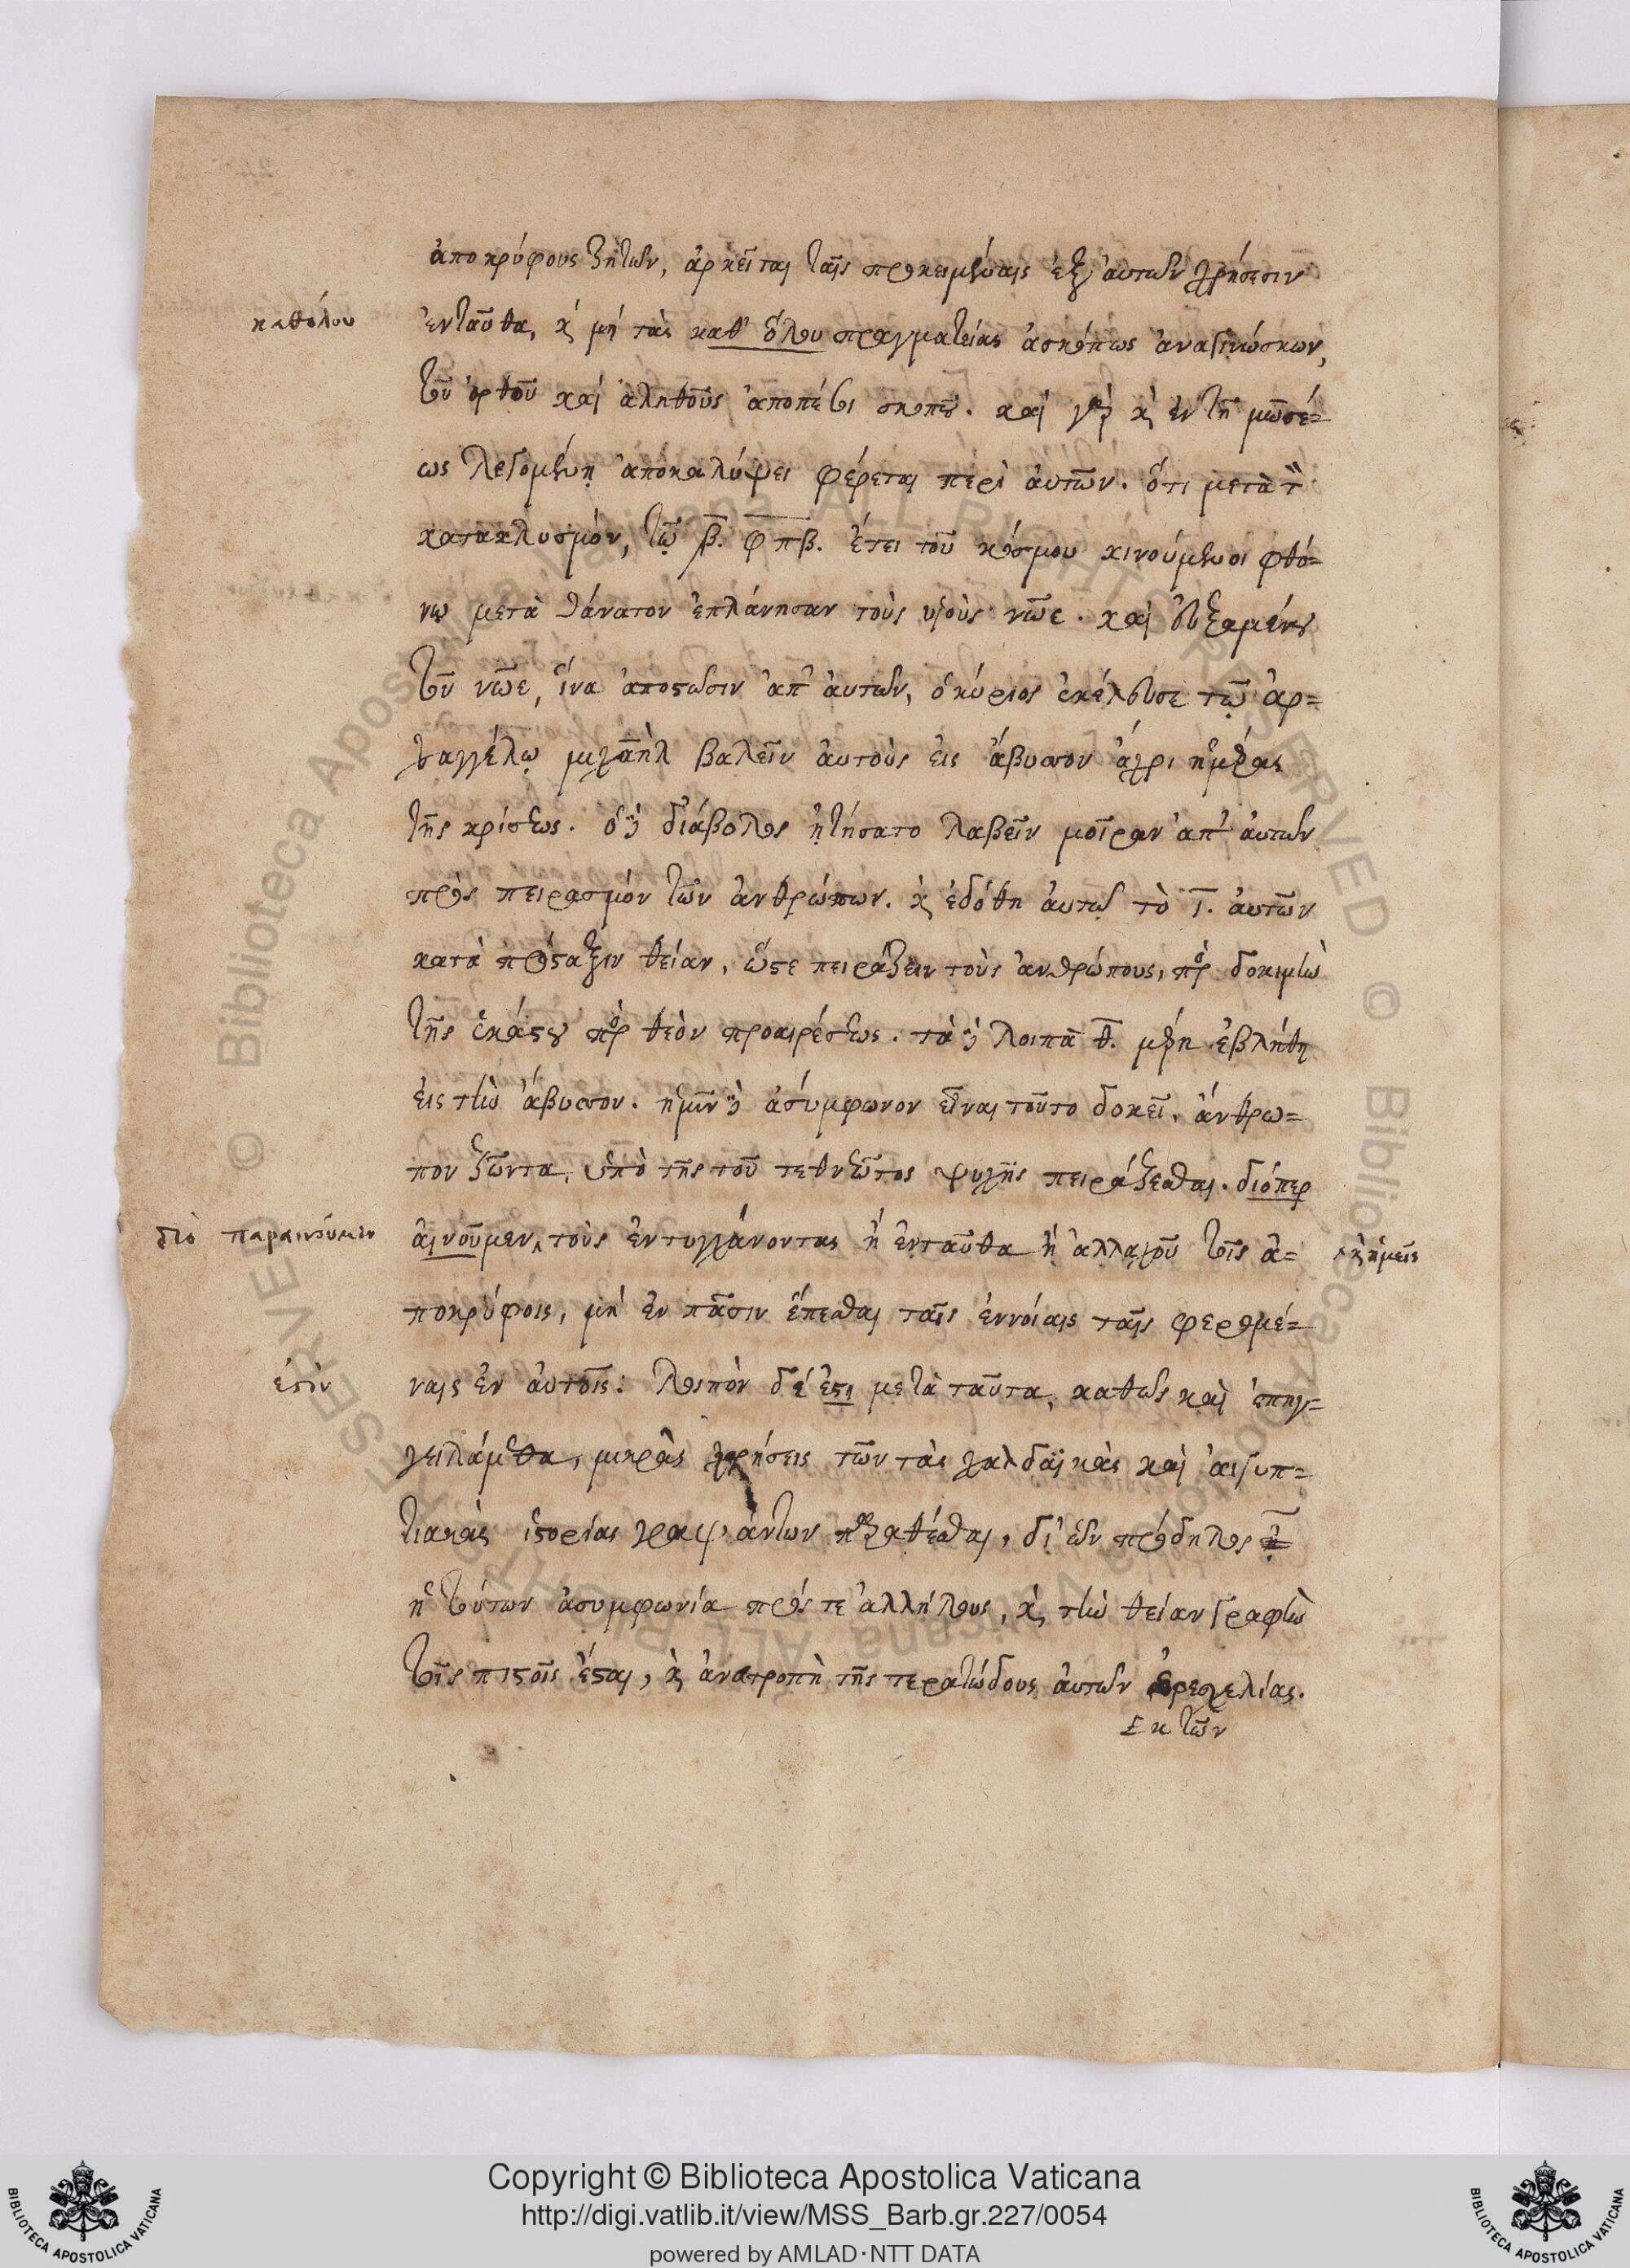 ἀποκρύφους ζητῶν, ἀρκεῖται ταῖς προκειμέναις ἐξ αὐτῶν χρήσεσιν
καθόλου
ἐνταῦθα, κ̀ μή τὰς καθ' ὅλου πραγματείας ἀσκόπως ἀναγινώσκων,
τοῦ ὀρθοῦ καὶ ἀληθοῦς ἀποπέσῃ σκοποῦ. καὶ γὰρ κ̀ ἐν τῇ μωσέ=
ως λεγομένῃ ἀποκαλύψει φέρεται περὶ αὐτῶν. ὅτι μετὰ τὸν
κατακλυσμόν, τῷ β. φπβ. ἔτει τοῦ κόσμου κινούμενοι φθό=
νῳ μετὰ θάνατον ἐπλάνησαν τοὺς υἱοὺς νῶε. καὶ εὐξαμένου
τοῦ νῶε, ἵνα ἀποστῶσιν ἀπ' αὐτῶν, ὁ κύριος ἐκέλευσε τῷ ἀρ=
χαγγέλῳ μιχαὴλ βαλεῖν αὐτοὺς εἰς ἄβυσσον ἄχρι ἡμέρας
τῆς κρίσεως. ὁ δὲ διάβολος ᾐτήσατο λαβεῖν μοῖραν ἀπ' αὐτῶν
πρὸς πειρασμόν τῶν ἀνθρώπων. κ̀ ἐδόθη αὐτῷ τὸ ι. αὐτῶν
κατὰ πρόσταξιν θείαν, ὥστε πειράζειν τοὺς ἀνθρώπους, πρὸς δοκιμὴν
τῆς ἑκάστου πρὸς θεὸν προαιρέσεως. τὰ δὲ λοιπὰ θ. μέρη ἐβλήθη
εἰς τὴν ἄβυσσον. ἡμῖν δὲ ἀσύμφωνον εἶναι τοῦτο δοκεῖ, ἄνθρω=
πον ζῶντα, ὑπὸ τῆς τοῦ τεθνεῶτος ψυχῆς πειράζεσθαι. διόπερ
διὸ παραινοῦμεν
αἰνοῦμεν ‸ τοὺς ἐντυγχάνοντας ἢ ἐνταῦθα ἢ ἀλλαχοῦ τοῖς ἀ=
‸ κ̀ ἡμεῖς
ποκρύφοις, μὴ ἐν πᾶσιν ἕπεσθαι ταῖς ἐννοίαις ταῖς φερομέ=
ἐστὶν
ναις ἐν αὐτοῖς: λοιπὸν δέ ἐστι μετὰ ταῦτα, καθὼς καὶ ἐπηγ=
γειλάμεθα, μικρὰς χρήσεις τῶν τὰς χαλδαϊκὰς καὶ αἰγυπ=
τιακὰς ἱστορίας γραψάντων παραθέσθαι, δι' ὧν πρόδηλος
ἡ τούτων ἀσυμφωνία πρός τε ἀλλήλους, κ̀ τὴν θείαν γραφὴν
τοῖς πιστοῖς ἔσται, κ̀ ἀνατροπὴ τῆς τερατώδους αὐτῶν ἐρεσχελίας.
Ἐκ τῶν
© Biblioteca Apostolica Vaticana ALL RIGHTS RESERVED © Biblioteca Apostolica Vaticana ALL RIGHTS RESERVED
BIBLIOTECA APOSTOLICA VATICANA
Copyright © Biblioteca Apostolica Vaticana
http://digi.vatlib.it/view/MSS_Barb.gr.227/0054
powered by AMLAD·NTT DATA
BIBLIOTECA APOSTOLICA VATICANA